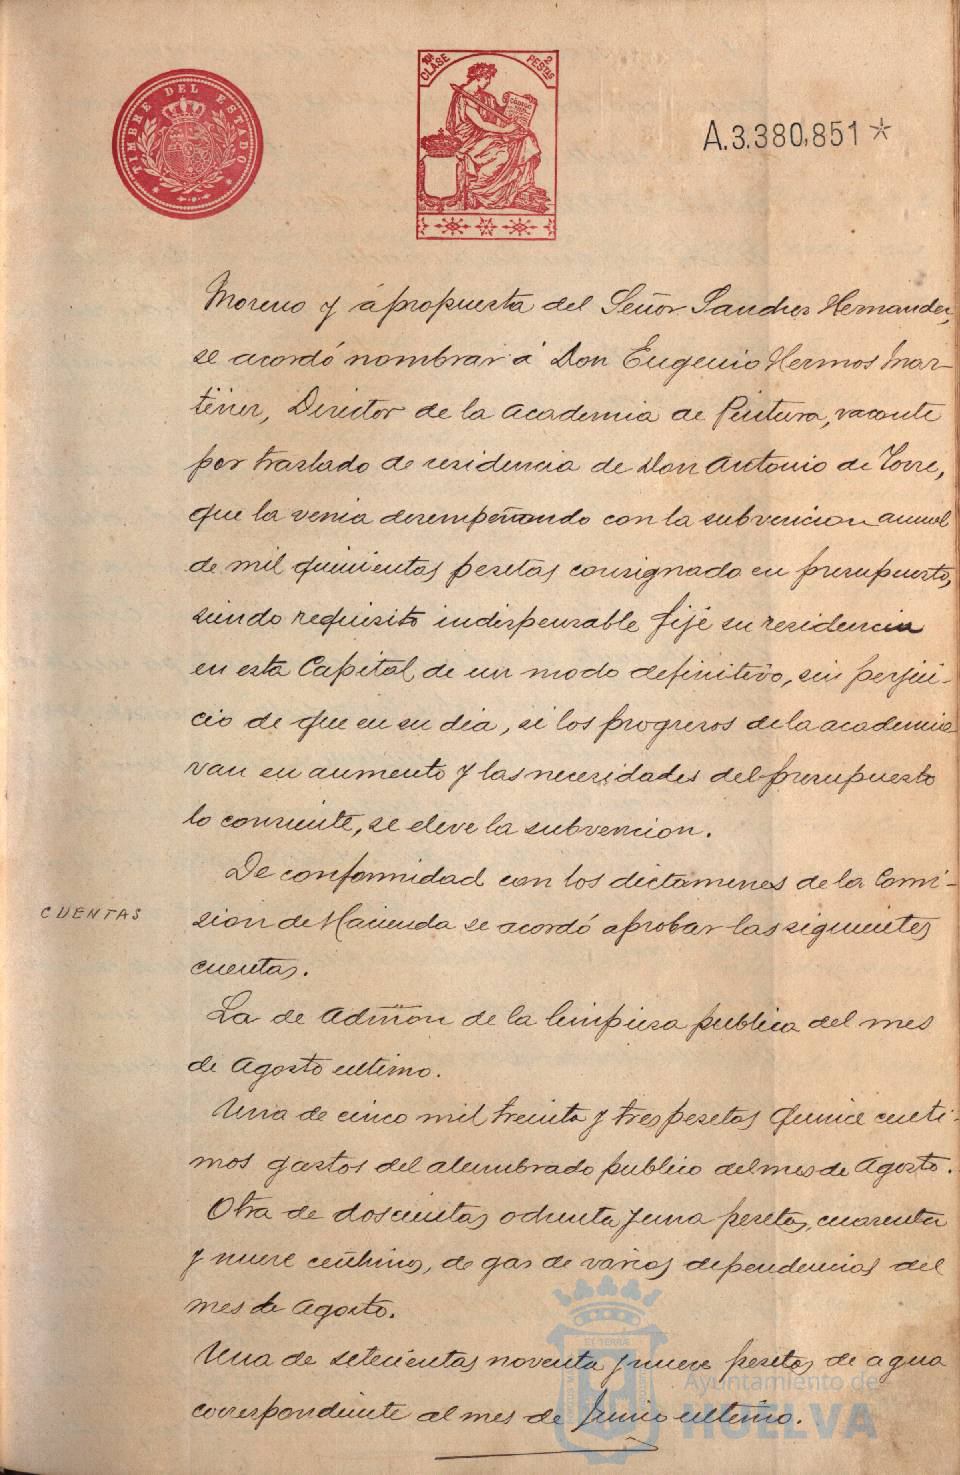 TIMBRE DEL ESTADO
10ª CLASE
2 PESTAS
CÓDIGO
A.3.380,851 *
Moreno y á propuesta del Señor Sanchez Hernandez,
se acordó nombrar á Don Eugenio Hermos Mar-
tinez, Director de la Academia de Pintura, vacante
por traslado de residencia de Don Antonio de Torre,
que la venia desempeñando con la subvencion anual
de mil quinientas pesetas consignado en presupuesto,
siendo requisito indispensable fijé su residencia
en esta Capital de un modo definitivo, sin perjui-
cio de que en su dia, si los progresos de la academia
van en aumento y las necesidades del presupuesto
lo consiente, se eleve la subvencion.
De conformidad con los dictamenes de la Comi-
CUENTAS
sion de Hacienda se acordó aprobar las siguientes
cuentas.
La de Admon de la limpieza publica del mes
de Agosto ultimo.
Una de cinco mil treinta y tres pesetas quince centi-
mos gastos del alumbrado publico del mes de Agosto.
Otra de doscientas ochenta y una pesetas, cuarenta
y nueve centimos, de gas de varias dependencias del
mes de Agosto.
Una de setecientas noventa y nueve pesetas de agua
correspondiente al mes de Junio ultimo.
Ayuntamiento de
HUELVA